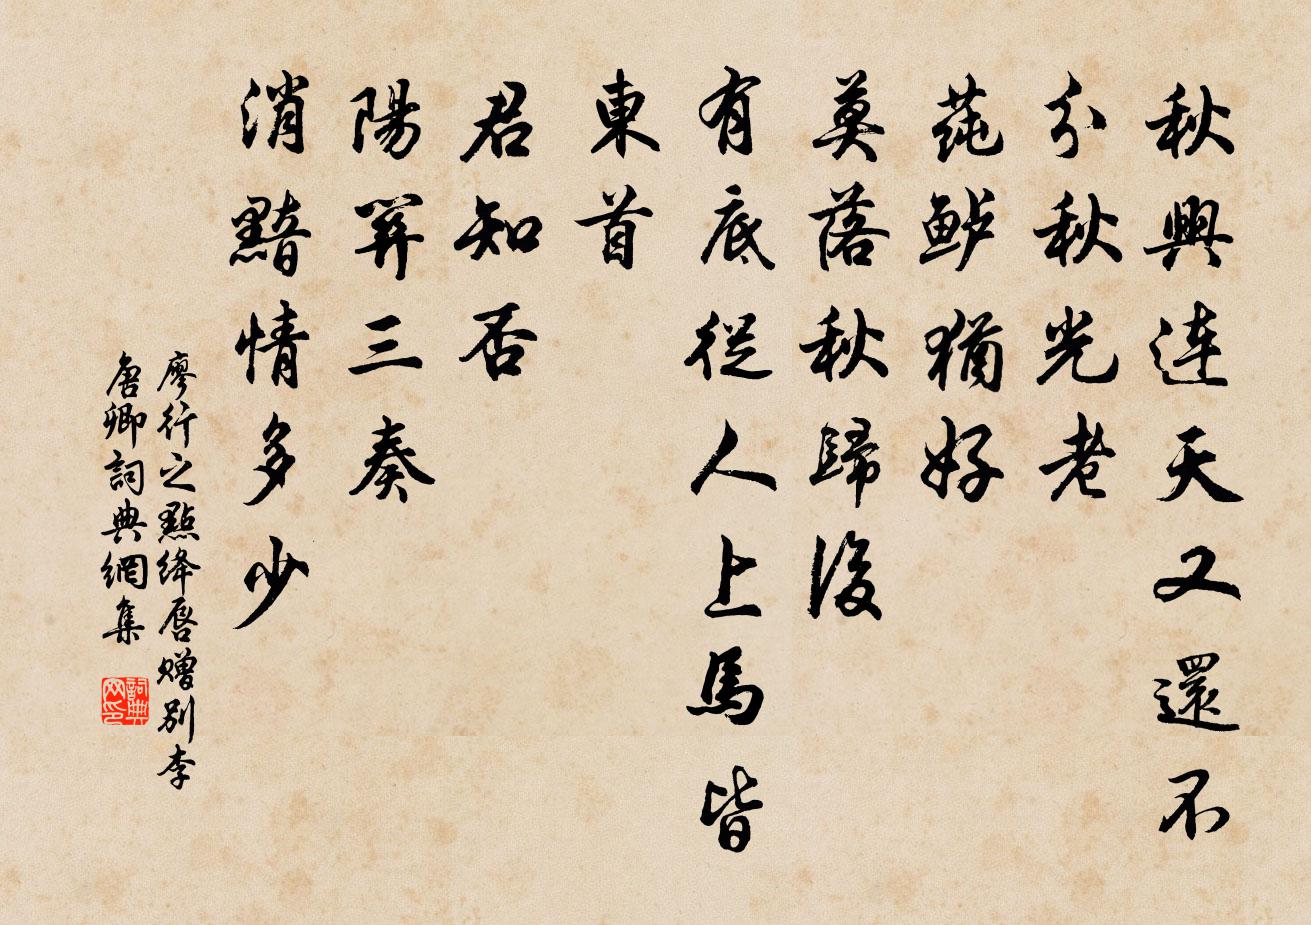 秋興連天又還不
分秋光老
莼鲈猶好
莫落秋歸後
有底從人上馬皆
東首
君知否
陽關三奏
消黯情多少
廖行之點絳唇贈別李
唐卿詞典網集
詞典网印